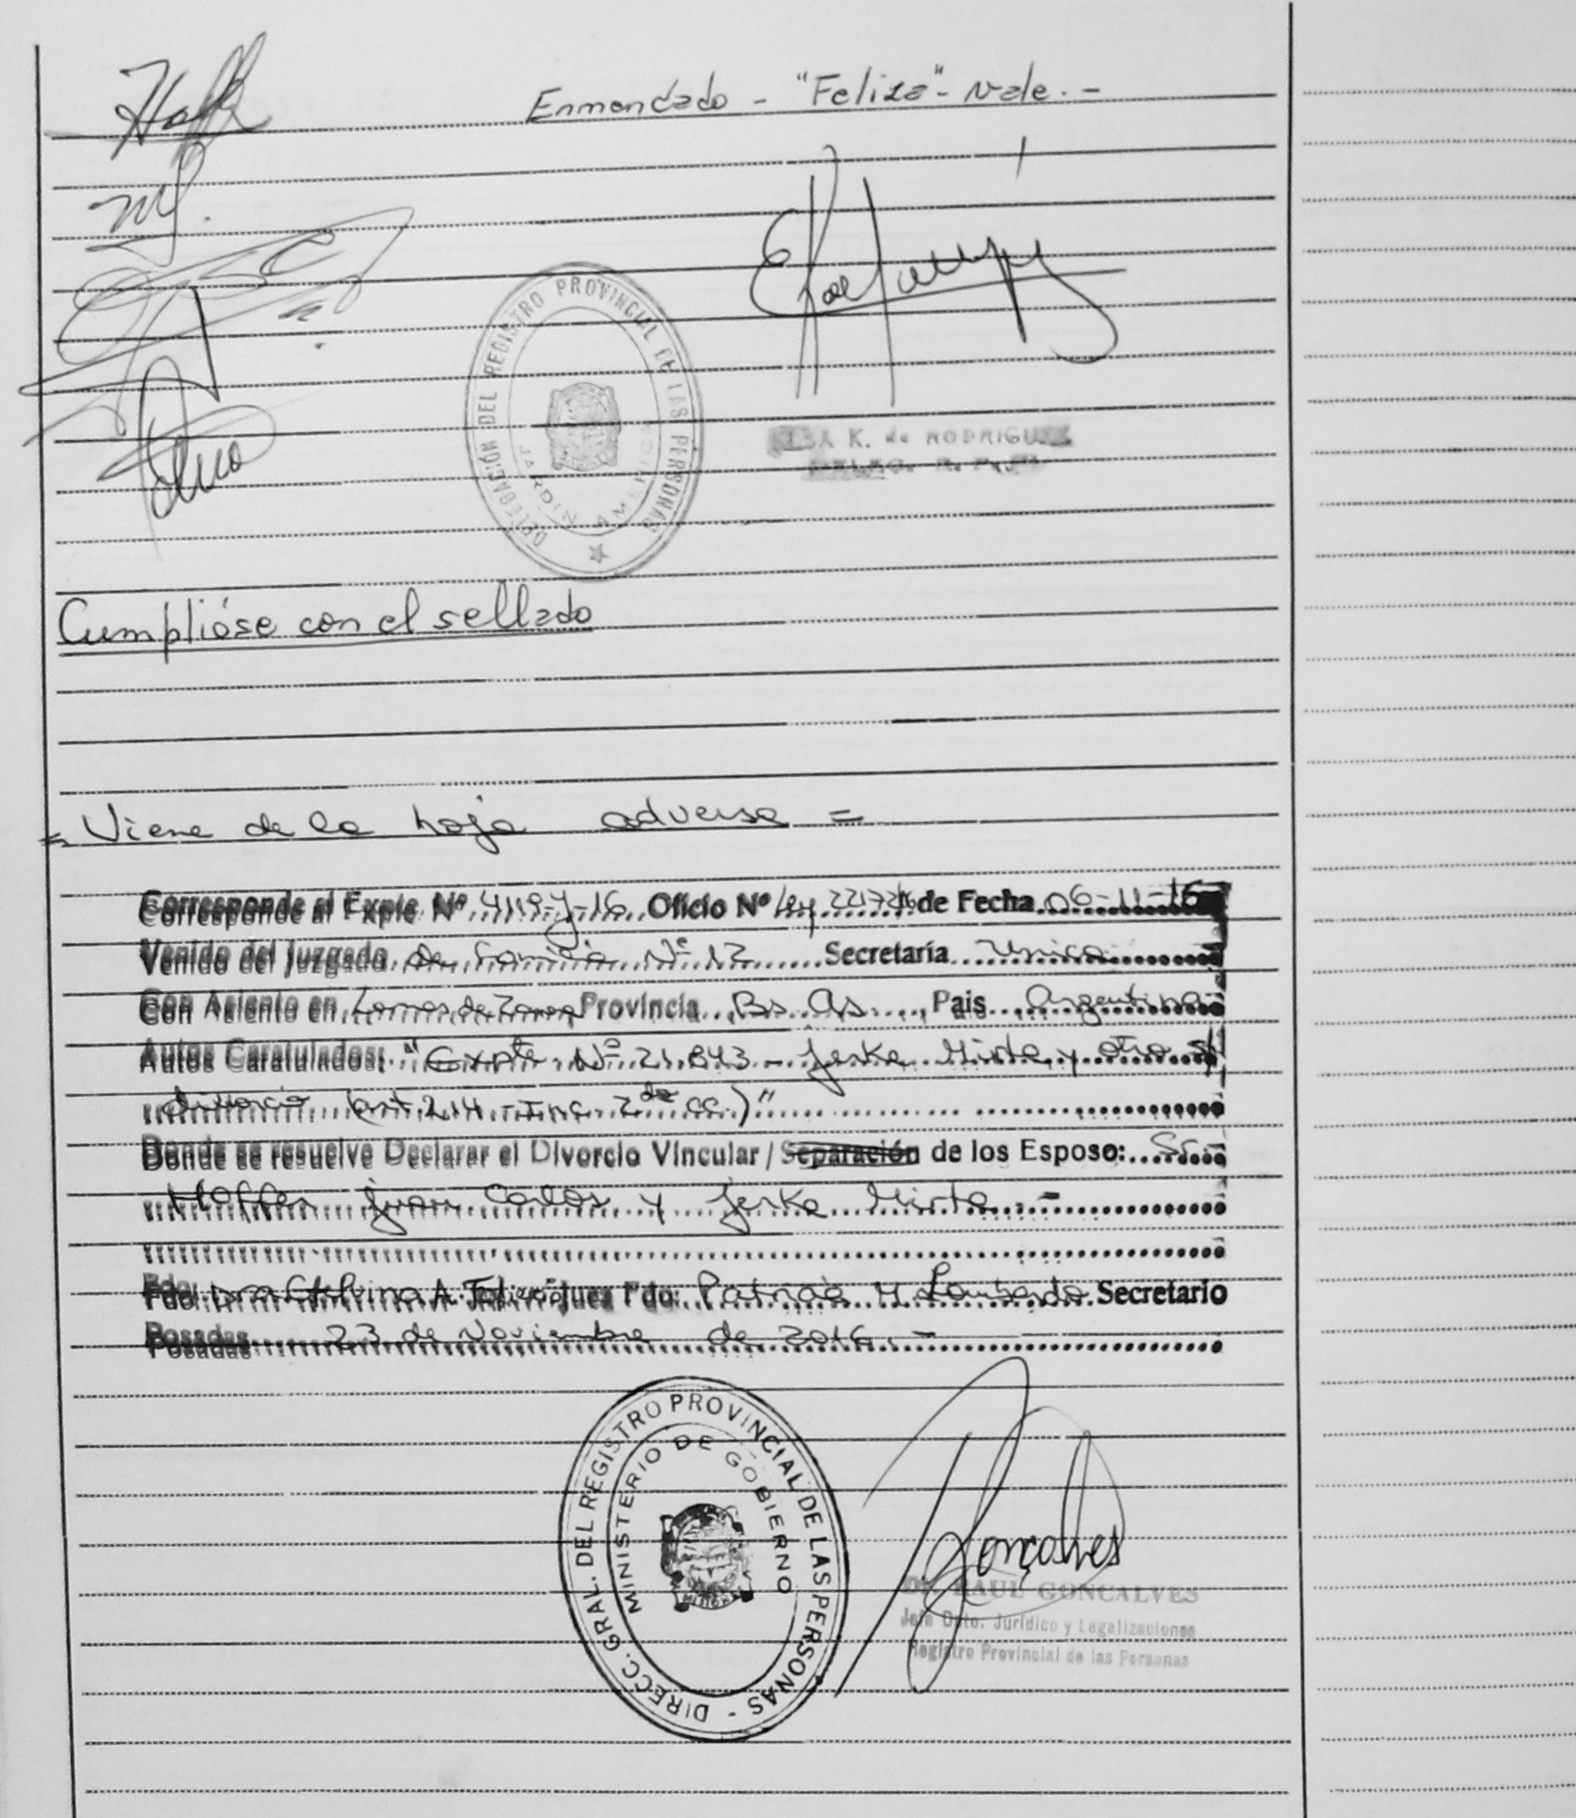 Enmendado - "Feliza" - vale. -
DELEGACIÓN DEL REGISTRO PROVINCIAL DE LAS PERSONAS
JARDIN AMERICA
ELSA K. de RODRIGUEZ
Cumplióse con el sellado
= Viene de la hoja adversa =
Corresponde al Expte Nº 4119-J-16 Oficio Nº Ley 22172 de Fecha 06-11-16
Venido del Juzgado de Familia Nº 12 Secretaría Unica
Con Asiento en Lomas de Zamora Provincia Bs. As. País Argentina
Autos Caratulados: "Expte Nº 21.843 - Jeske Mirta y otro s/
divorcio (art. 214 - Inc. 2do CC)"
Donde se resuelve Declarar el Divorcio Vincular / Separación de los Esposo: Sr. -
Hoffer Juan Carlos y Jeske Mirta. -
Fdo: Dra A. Juez Fdo: Patricia M Lombardo Secretario
Posadas 23 de Noviembre de 2016. -
DIRECC. GRAL. DEL REGISTRO PROVINCIAL DE LAS PERSONAS -
MINISTERIO DE GOBIERNO
Gonçalves
Dr. RAUL GONCALVES
Jefe Dpto. Jurídico y Legalizaciones
Registro Provincial de las Personas